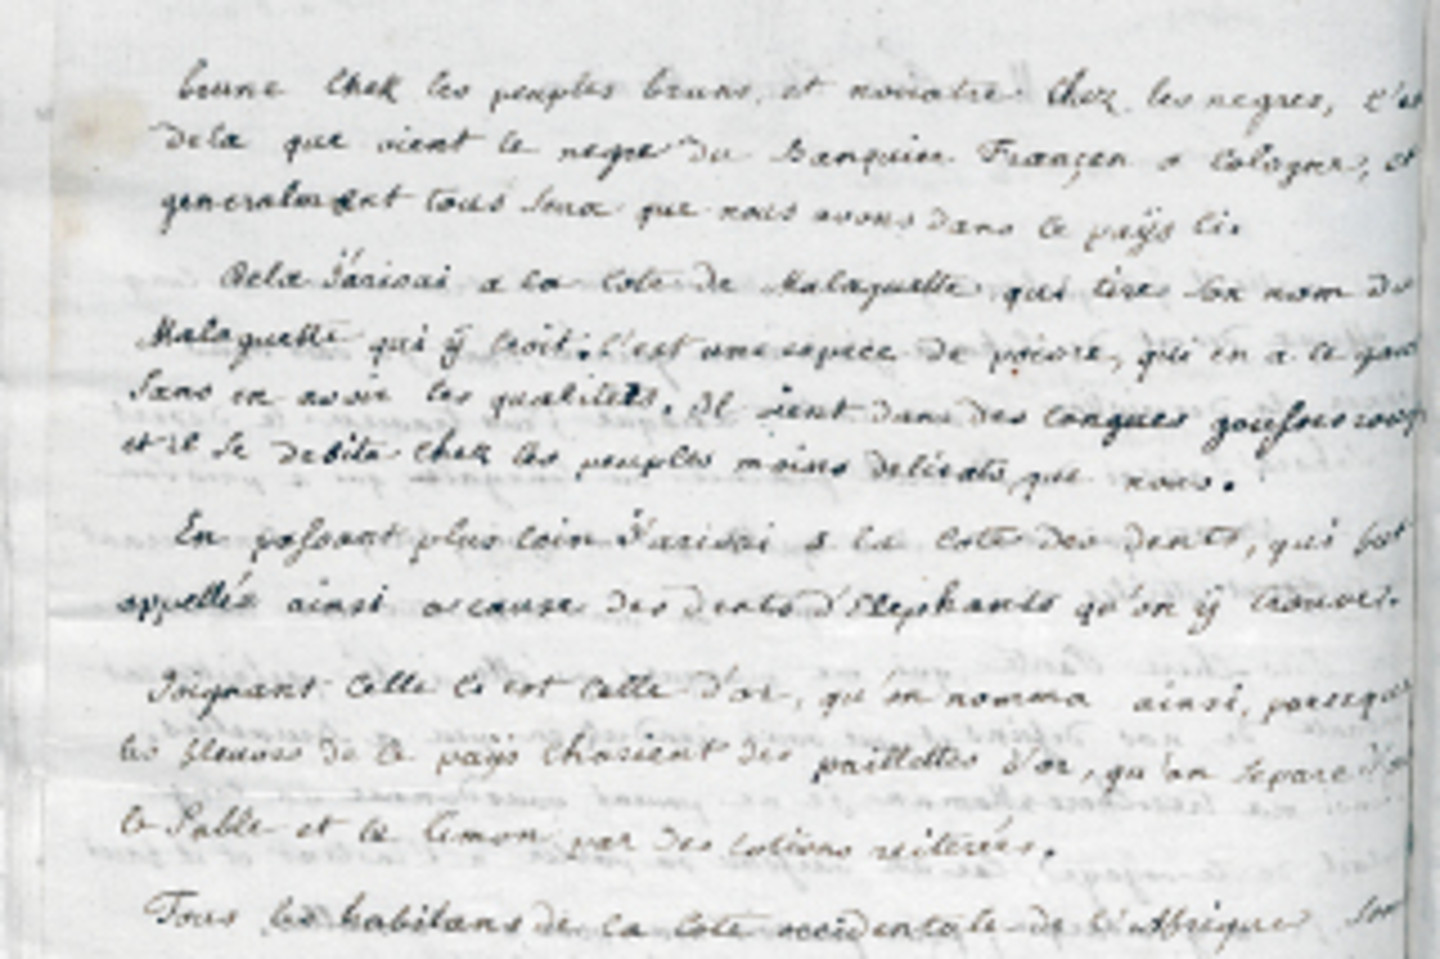 brune chez les peuples bruns, et noiratre chez les negres, c'est
dela que vient le negre du Banquier Françen a Cologne, et
generalment tous ceux que nous avons dans ce païs ci.
Dela j'arivai a la cote de Malaguette qui tire son nom du
Malaguette qui ÿ croit. C'est une espece de poivre, qui en a le gout
sans en avoir les qualités. Il vient dans des longues gousses rouges
et il se debite chez les peuples moins delicats que nous.
En passant plus loin j'arivai a la cote des dents, qui est
appellés ainsi a cause des dents d'Elephants qu'on ÿ trouve.
Joignant celle ci est celle d'or, qu'on nomma ainsi, parceque
les fleuves de ce pays charient des paillettes d'or, qu'on separe d'avec
le sable et le limon par des lotions reiterées.
Tous les habitans de la cote occidentale de l'Afrique sont